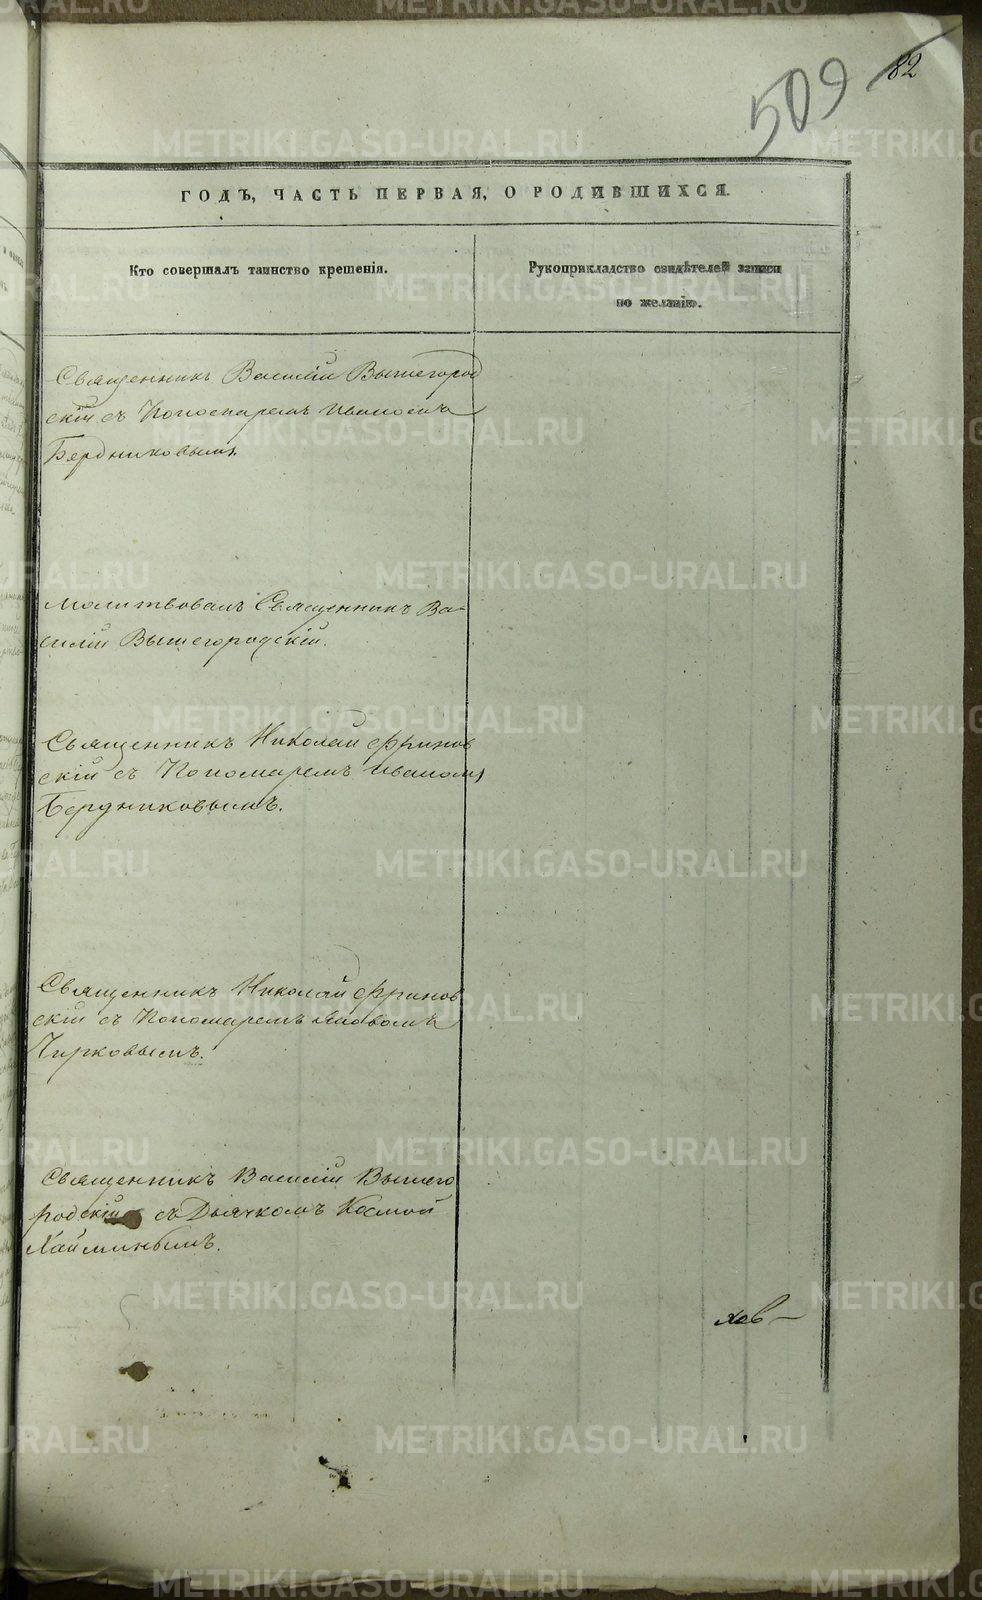 82
509
ГОДЪ, ЧАСТЬ ПЕРВАЯ, О РОДИВШИХСЯ.
Кто совершалъ таинство крещенія.
Рукоприкладство свидѣтелей записи
по желанію.
Священникъ Василій Вышегород
скій съ Пономаремъ Иваномъ
Бердниковымъ.
Молитвовалъ Священникъ Ва-
силій Вышегородскій.
Священникъ Николай Фринов
скій съ Пономаремъ Иваномъ
Бердниковымъ.
Священникъ Николай Фринов
скій съ Пономаремъ Яковомъ
Чирковымъ.
Священникъ Василій Вышего
родскій съ Дьячкомъ Космой
Хайминымъ.
METRIKI.GASO-URAL.RU